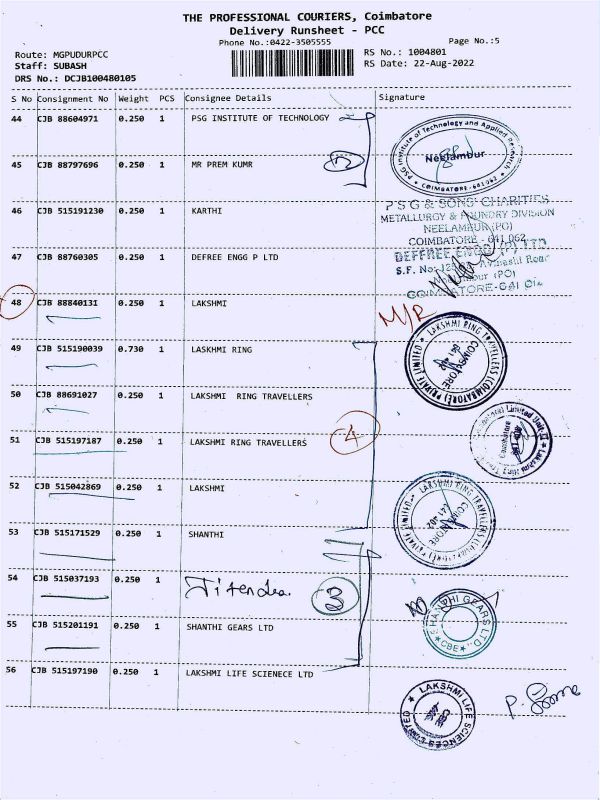 THE PROFESSIONAL COURIERS, Coimbatore
Delivery Runsheet - PCC
Phone No.:0422-3505555
Page No.:5
Route: MGPUDURPCC
RS No.: 1004801
Staff: SUBASH
RS Date: 22-Aug-2022
DRS No.: DCJB100480105
S No Consignment No Weight PCS Consignee Details Signature
44 CJB 88604971 0.250 1 PSG INSTITUTE OF TECHNOLOGY
PSG Institute of Technology and Applied Research
Neelambur
COIMBATORE-641062
45 CJB 88797696 0.250 1 MR PREM KUMR 2
46 CJB 515191230 0.250 1 KARTHI
PSG & SONS' CHARITIES
METALLURGY & FOUNDRY DIVISION
NEELAMBUR (PO)
COIMBATORE - 641 062
47 CJB 88760305 0.250 1 DEFREE ENGG P LTD
DEFFREE ENGG (P) LTD
S.F. No: Avinashi Road
(PO)
48 CJB 88840131 0.250 1 LAKSHMI
M/R
49 CJB 515190039 0.730 1 LASKHMI RING
LAKSHMI RING TRAVELLERS (COIMBATORE) PRIVATE LIMITED
COIMBATORE
50 CJB 88691027 0.250 1 LAKSHMI RING TRAVELLERS
51 CJB 515197187 0.250 1 LAKSHMI RING TRAVELLERS 4
Limited Unit-II Lakshmi Ring
Coimbatore
52 CJB 515042869 0.250 1 LAKSHMI
LAKSHMI RING TRAVELLERS
53 CJB 515171529 0.250 1 SHANTHI
54 CJB 515037193 0.250 1 Jitendra. 3
55 CJB 515201191 0.250 1 SHANTHI GEARS LTD
SHANTHI GEARS LTD.
CBE
56 CJB 515197190 0.250 1 LAKSHMI LIFE SCIENECE LTD
LAKSHMI LIFE SCIENCES LIMITED